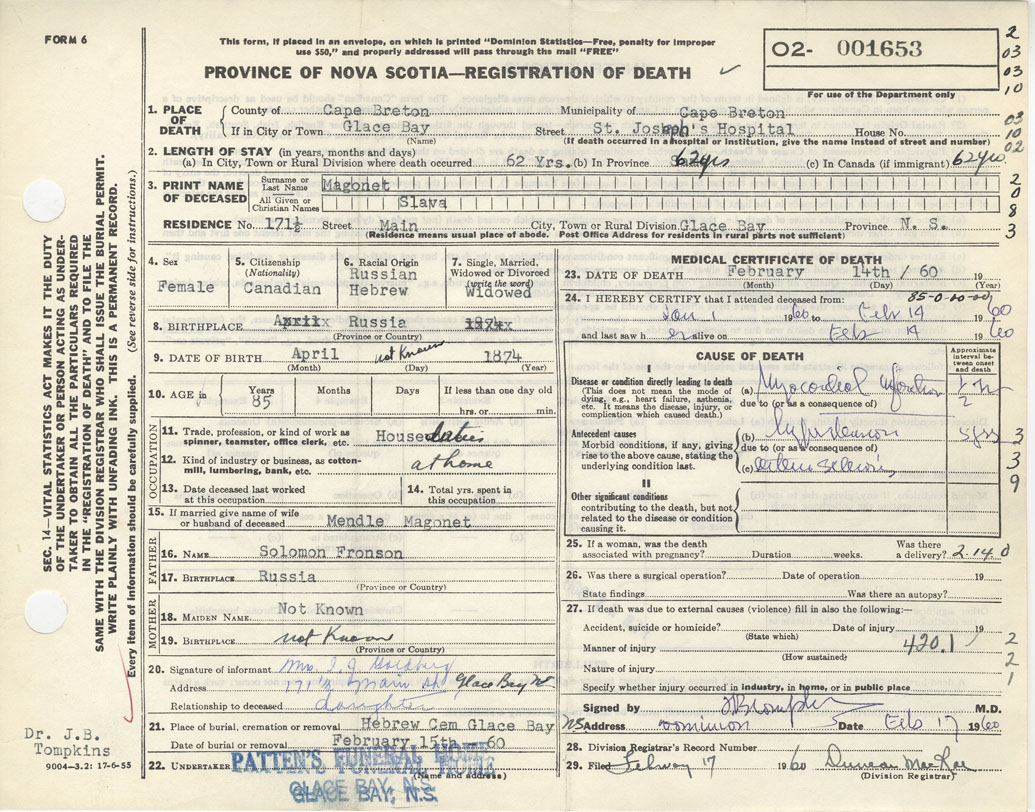 FORM 6
This form, if placed in an envelope, on which is printed "Dominion Statistics—Free, penalty for improper
use $50," and properly addressed will pass through the mail "FREE"
PROVINCE OF NOVA SCOTIA—REGISTRATION OF DEATH
02- 001653
For use of the Department only
2
03
03
10
03
10
02
2
0
8
3
SEC. 14—VITAL STATISTICS ACT MAKES IT THE DUTY
OF THE UNDERTAKER OR PERSON ACTING AS UNDER-
TAKER TO OBTAIN ALL THE PARTICULARS REQUIRED
IN THE "REGISTRATION OF DEATH" AND TO FILE THE
SAME WITH THE DIVISION REGISTRAR WHO SHALL ISSUE THE BURIAL PERMIT.
WRITE PLAINLY WITH UNFADING INK. THIS IS A PERMANENT RECORD.
Every item of information should be carefully supplied. (See reverse side for instructions.)
1. PLACE OF DEATH County of Cape Breton Municipality of Cape Breton
If in City or Town Glace Bay Street St. Joseph's Hospital House No.
(Name) (If death occurred in a hospital or institution, give the name instead of street and number)
2. LENGTH OF STAY (in years, months and days)
(a) In City, Town or Rural Division where death occurred 62 Yrs. (b) In Province 62yrs (c) In Canada (if immigrant) 62yrs
3. PRINT NAME OF DECEASED Surname or Last Name Magonet
All Given or Christian Names Slava
RESIDENCE No. 171½ Street Main City, Town or Rural Division Glace Bay Province N. S.
(Residence means usual place of abode. Post Office Address for residents in rural parts not sufficient)
4. Sex
Female
5. Citizenship
(Nationality)
Canadian
6. Racial Origin
Russian
Hebrew
7. Single, Married,
Widowed or Divorced
(write the word)
Widowed
8. BIRTHPLACE Russia
(Province or Country)
9. DATE OF BIRTH April not Known 1874
(Month) (Day) (Year)
10. AGE Years Months Days If less than one day old
85 hrs. or min.
OCCUPATION
11. Trade, profession, or kind of work as
spinner, teamster, office clerk, etc. House duties
12. Kind of industry or business, as cotton-
mill, lumbering, bank, etc. at home
13. Date deceased last worked
at this occupation
14. Total yrs. spent in
this occupation
15. If married give name of wife
or husband of deceased Mendle Magonet
FATHER
16. NAME Solomon Fronson
17. BIRTHPLACE Russia
(Province or Country)
MOTHER
18. MAIDEN NAME Not Known
19. BIRTHPLACE not Known
(Province or Country)
20. Signature of informant Mrs. I. J. Goldberg
Address 171½ Main St Glace Bay
Relationship to deceased daughter
21. Place of burial, cremation or removal Hebrew Cem Glace Bay
Date of burial or removal February 15th 60
22. UNDERTAKER PATTEN'S FUNERAL HOME
(Name and address)
GLACE BAY, N.S.
Dr. J.B.
Tompkins
9004—3.2: 17-6-55
MEDICAL CERTIFICATE OF DEATH
23. DATE OF DEATH February 14th / 60 19
(Month) (Day) (Year)
24. I HEREBY CERTIFY that I attended deceased from: 85-0-00-00
Jan 1 1960 to Feb 14 1960
and last saw h er alive on Feb 14 1960
CAUSE OF DEATH
Approximate
interval be-
tween onset
and death
I
Disease or condition directly leading to death
(This does not mean the mode of
dying, e.g., heart failure, asthenia,
etc. It means the disease, injury, or
complication which caused death.)
(a) Myocardial
due to (or as a consequence of)
Antecedent causes
Morbid conditions, if any, giving
rise to the above cause, stating the
underlying condition last.
(b) hypertension 5 yrs
due to (or as a consequence of)
(c)
II
Other significant conditions
contributing to the death, but not
related to the disease or condition
causing it.
3
3
9
25. If a woman, was the death
associated with pregnancy? Duration weeks. Was there
a delivery? 2.14.0
26. Was there a surgical operation? Date of operation 19
State findings Was there an autopsy?
27. If death was due to external causes (violence) fill in also the following:—
Accident, suicide or homicide? Date of injury 19
(State which)
Manner of injury 420.1
(How sustained)
Nature of injury
2
2
1
Specify whether injury occurred in industry, in home, or in public place
Signed by M.D.
NS Address Dominion Date Feb 17 1960
28. Division Registrar's Record Number
29. Filed February 17 1960 Duncan MacRae
(Division Registrar)